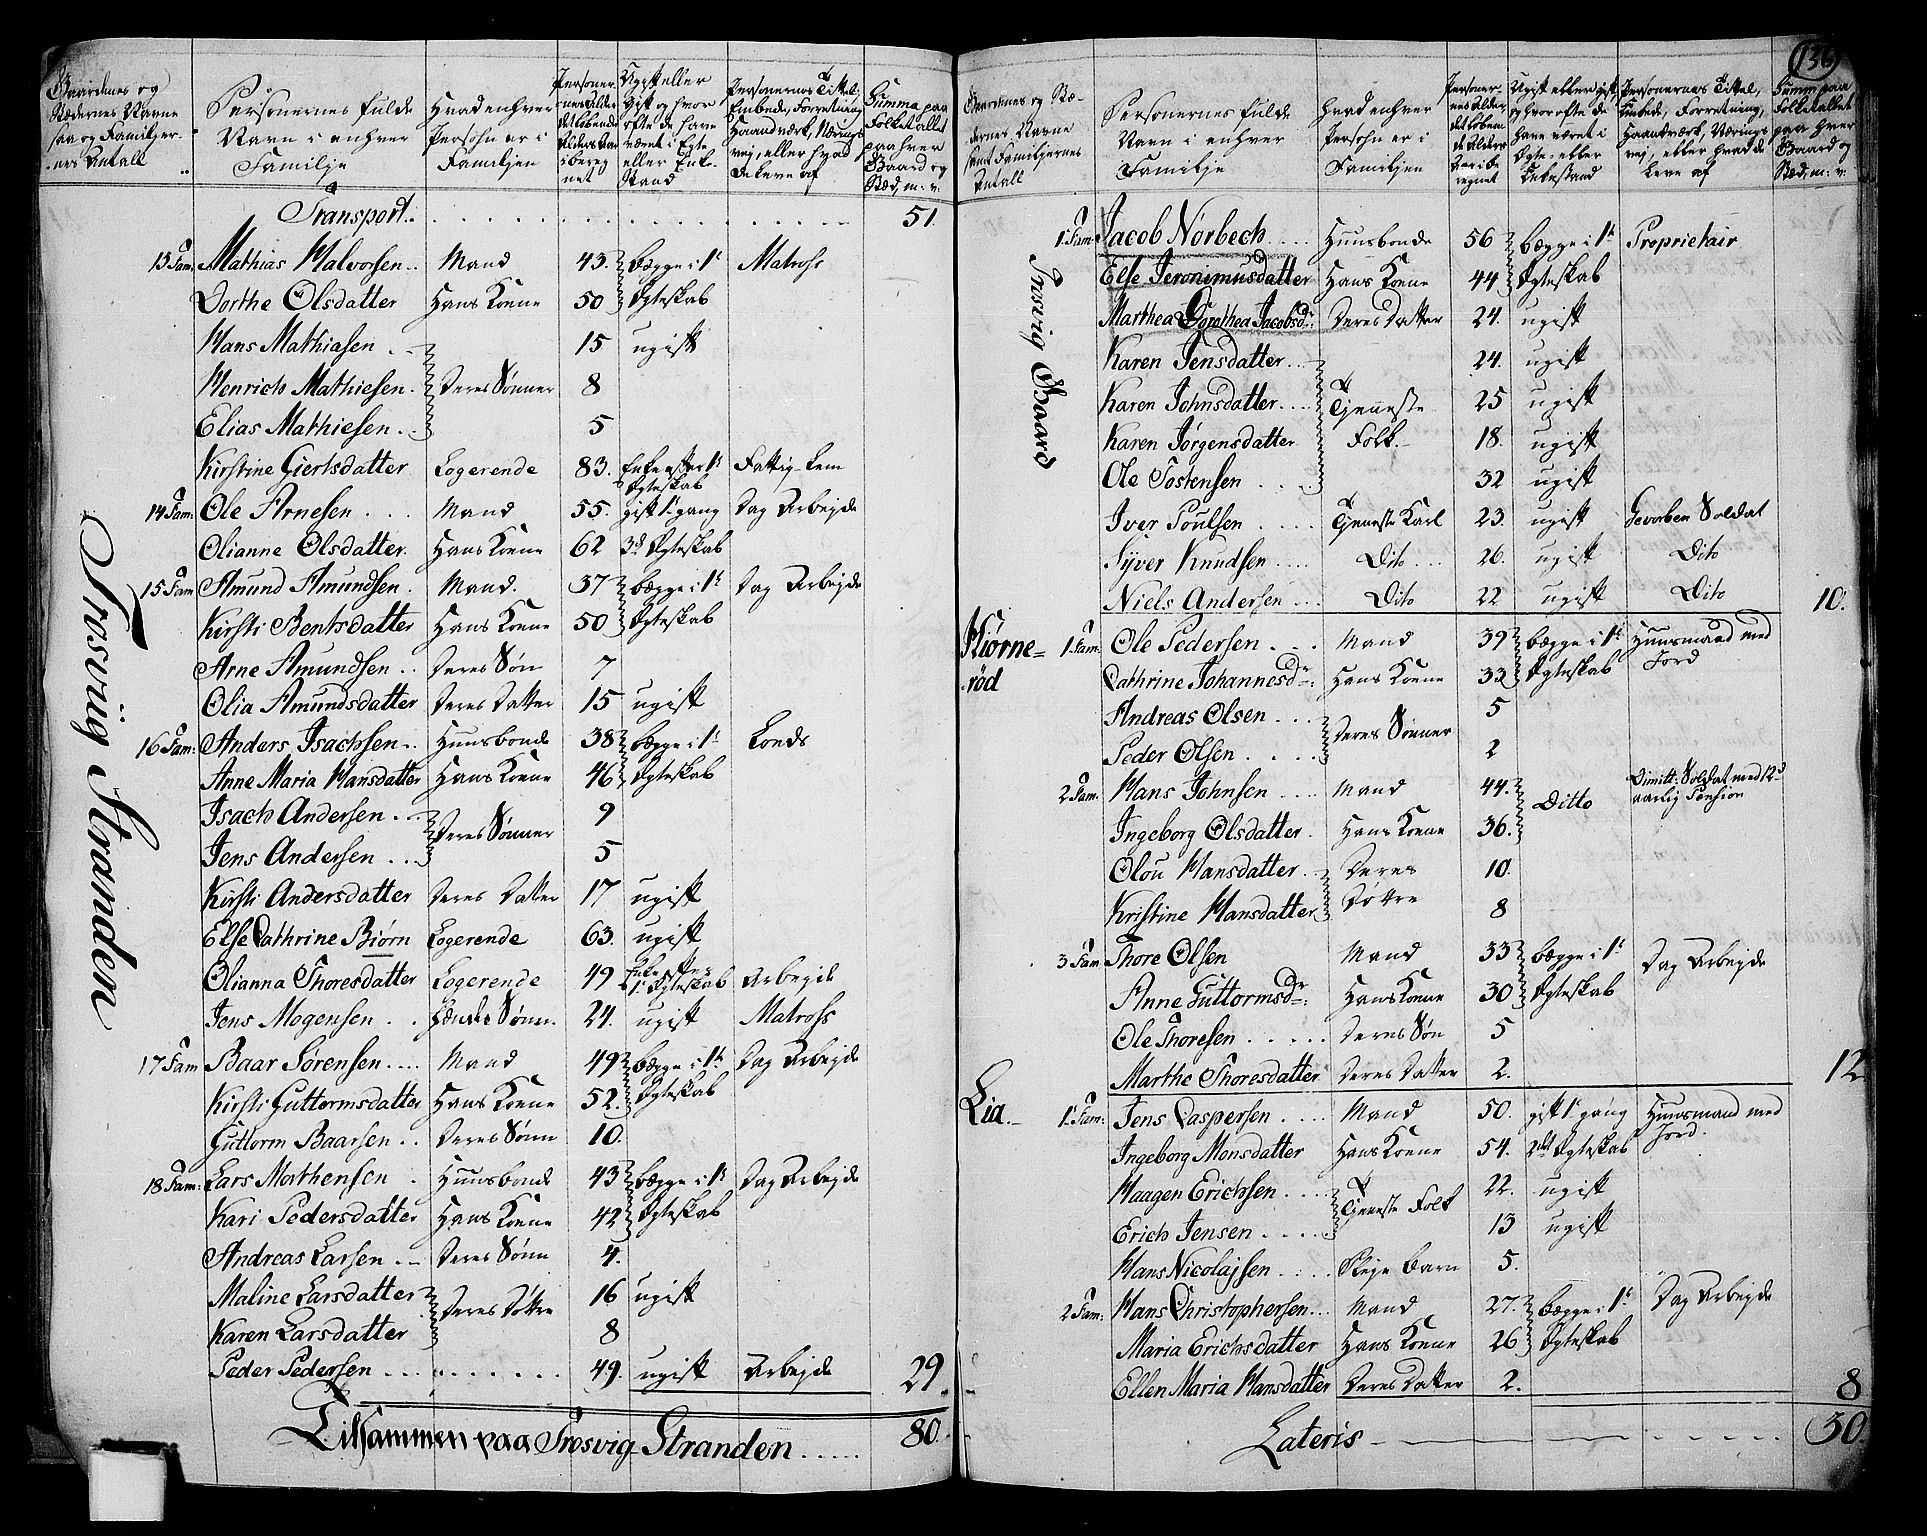 Gaardenes og
Stædernes Navne
saa og Familjer-
nes Antall
Personernes fulde
Navn i enhver
Familje
Hvad enhver
Persohn er i
Familjen
Transport. 51.
13 Fam: Mathias Halvorsen Mand 43. begge i 1te Matross
Dorthe Olsdatter Hans Kone 50 Ægteskab
Hans Mathiasen 15 ugift
Henrich Mathiesen Deres Sønner 8
Elias Mathiesen 5
Kirstine Giertsdatter Logerende 83. Enke efter 1te Ægteskab Fattig-Lem
14 Fam: Ole Arnesen Mand 55. gift 1te gang Dag Arbejde
Olianne Olsdatter Hans Kone 62 3de Ægteskab
15 Fam Amund Amundsen Mand. 37 begge i 1te Dag Arbejde
Kirsti Bentsdatter Hans Kone 50 Ægteskab
Arne Amundsen Deres Søn 7
Olia Amundsdatter Deres Datter 15 ugift
16 Fam: Anders Isachsen Huusbonde 38 begge i 1te Londs
Anne Maria Hansdatter Hans Kone 46 Ægteskab
Isach Andersen 9
Deres Sønner
Jens Andersen 5
Kirsti Andersdatter Deres Datter 17 ugift
Else Cathrine Biørn Logerende 63. ugift
Olianna Thoresdatter Logerende 49 Enke efter 1te Ægteskab Arbejde
Jens Mogensen Hendes Sønn. 24. ugift Matross
17 Fam Baar Sørensen Mand 49 begge i 1te Dag Arbejde
Kirsti Guttormsdatter Hans Kone 52. Ægteskab
Guttorm Baarsen Deres Sønn 10.
18 Fam: Lars Mathensen Huusbonde 43 begge i 1te Dag Arbejde
Kari Pedersdatter Hans Kone 42 Ægteskab
Andreas Larsen Deres Sønn 4.
Maline Larsdatter 16 ugift
Deres Døttre
Karen Larsdatter 8
Peder Pedersen 49. ugift Arbejde 29.
Tilsammen paa Trosvig Stranden 80.
Trosviig Stranden
136
Gaardenes og Stæ-
dernes Navne
samt Familjernes
Antall
Personernes fulde
Navn i enhver
Familje
hvad enhver
Persohn er i
Familjen
Trosvig Gaard
1 Fam: Jacob Nørbech Huusbonde 56 begge i 1te Proprietair
Else Jeronimusdatter Hans Kone 44 Ægteskab
Marthea Dorothea Jacobsdr: Deres Datter 24. ugift
Karen Jensdatter 24. ugift
Karen Johnsdatter Tjeneste 25 ugift
Karen Jørgensdatter Folk 18. ugift
Ole Tostensen 32 ugift
Iver Poulsen Tjeneste Karl 23. ugift Gevorben Soldat
Syver Knudsen Dito 26. ugift Dito
Niels Andersen Dito 22 ugift Dito 10.
Kiørne-
rød
1 Fam: Ole Pedersen Mand 39 begge i 1te Huusmand med Jord
Cathrine Johannesdr: Hans Kone 33 Ægteskab
Andreas Olsen 5
Deres Sønner
Peder Olsen 2
2 Fam: Hans Johnsen Mand 44. Ditto Dimitt: Soldat med 12 d aarlig Pension
Ingeborg Olsdatter Hans Kone 36.
Olou Hansdatter Deres 10.
Kristine Hansdatter Døttre 8
3 Fam Thore Olsen Mand 33 begge i 1te Dag Arbejde
Anne Guttormsdr: Hans Kone 30 Ægteskab
Ole Thoresen Deres Søn 5
Marthe Thoresdatter Deres Datter 2. 12.
Lia
1 Fam: Jens Caspersen Mand 50. gift 1te gang Huusmand med Jord.
Ingeborg Monsdatter Hans Kone 54. 2det Ægteskab
Haagen Erichsen 22. ugift
Tjeneste Folk
Erich Jensen 13 ugift
Hans Nicolajsen Pleje Barn 5.
2 Fam: Hans Christophersen Mand 27. begge i 1te Dag Arbejde
Maria Erichsdatter Hans Kone 26 Ægteskab
Ellen Maria Hansdatter Deres Datter 2. 8
Lateris 30.